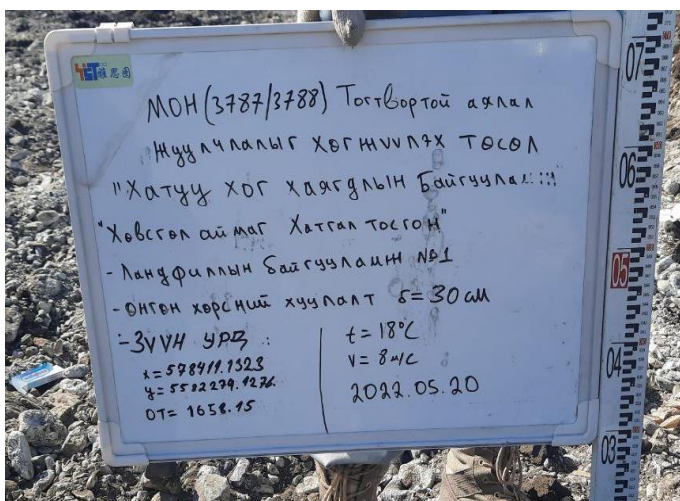 YCT 雅思图
МОН (3787/3788) Тогтвортой аялал
жуулчлалыг хөгжүүлэх төсөл
"Хатуу хог хаягдлын байгуулам
"Хөвсгөл аймаг Хатгал тосгон"
- Ландфиллын байгууламж №1
- өнгөн хөрсний хуулалт δ=30 см
- ЗҮҮН УРД
x=578411.1323
y=5582279.1276
ОТ= 1658.15
t=18°C
v=8м/с
2022.05.20
07
06
05
04
03